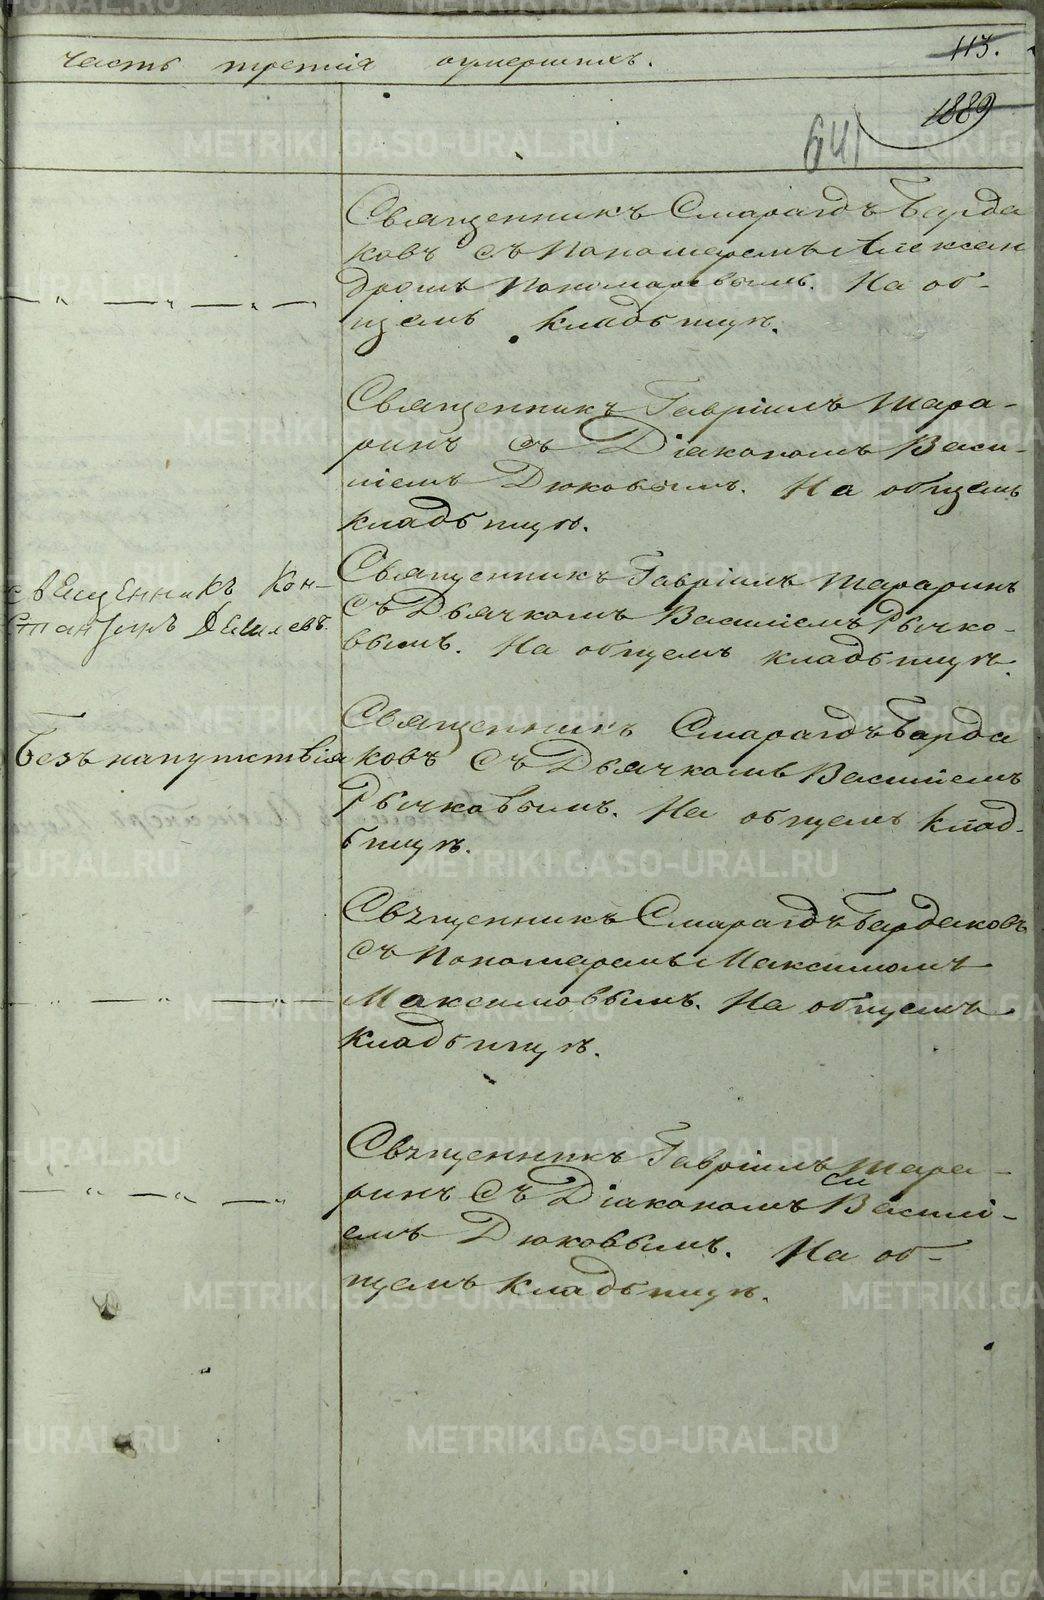 Часть третія умершихъ.
113.
1889
641
Священникъ Смарагдъ Барда
ковъ съ Пономаремъ Алексан
дромъ Пономаревымъ. На об-
щемъ кладбищѣ.
Священникъ Гавріилъ Тара-
ринъ съ Діакономъ Васи-
ліемъ Дюковымъ. На общемъ
кладбищѣ.
Священникъ Кон-
стантинъ
Священникъ Гавріилъ Тараринъ
съ Дьячкомъ Василіемъ Рычко-
вымъ. На общемъ кладбищѣ.
Безъ напутствія
Священникъ Смарагдъ Барда
ковъ съ Дьячкомъ Василіемъ
Рычковымъ. На общемъ клад-
бищѣ.
Священникъ Смарагдъ Бардаковъ
съ Пономаремъ Максимомъ
Максимовымъ. На общемъ
кладбищѣ.
Священникъ Гавріилъ Тара-
ринъ съ Діакономъ Василі-
емъ Дюковымъ. На об-
щемъ кладбищѣ.
METRIKI.GASO-URAL.RU